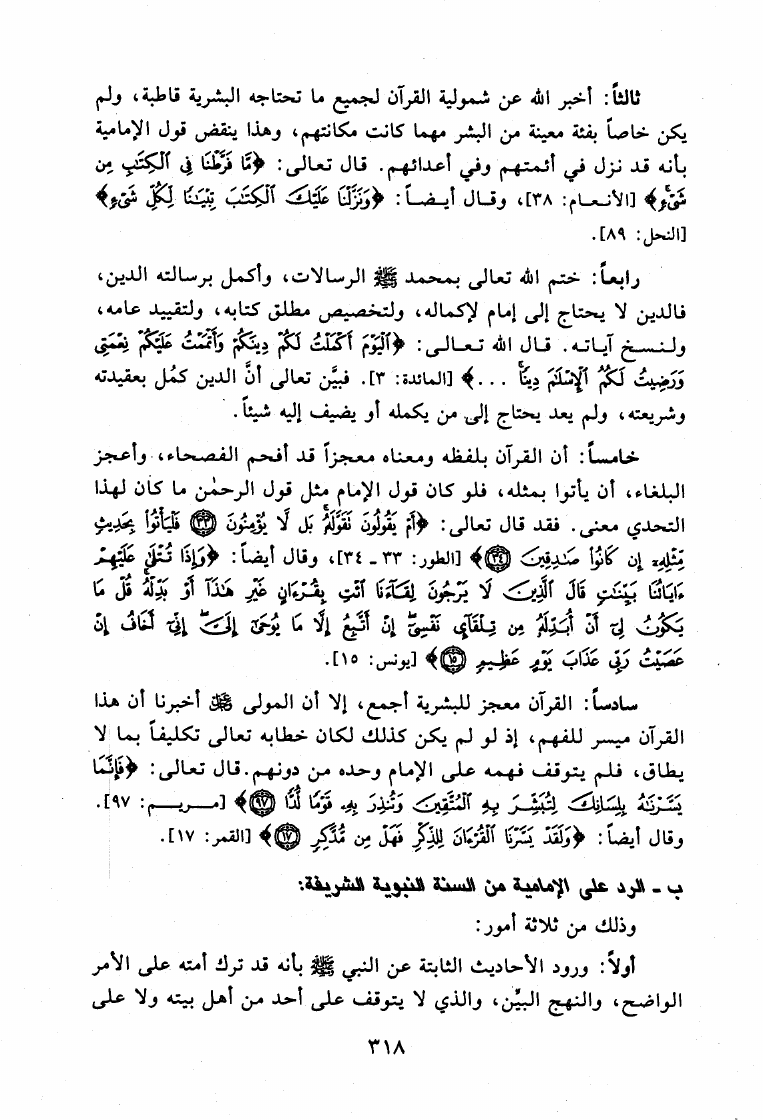 ثالثاً: أخبر الله عن شمولية القرآن لجميع ما تحتاجه البشرية قاطبة، ولم
يكن خاصاً بفئة معينة من البشر مهما كانت مكانتهم، وهذا ينقض قول الإمامية
بأنه قد نزل في أئمتهم وفي أعدائهم. قال تعالى: ﴿مَّا فَرَّطْنَا فِي ٱلْكِتَٰبِ مِن
شَىْءٍ﴾ [الأنعام: ٣٨]، وقال أيضاً: ﴿وَنَزَّلْنَا عَلَيْكَ ٱلْكِتَٰبَ تِبْيَٰنًا لِّكُلِّ شَىْءٍ﴾
[النحل: ٨٩].
رابعاً: ختم الله تعالى بمحمد ﷺ الرسالات، وأكمل برسالته الدين،
فالدين لا يحتاج إلى إمام لإكماله، ولتخصيص مطلق كتابه، ولتقييد عامه،
ولنسخ آياته. قال الله تعالى: ﴿ٱلْيَوْمَ أَكْمَلْتُ لَكُمْ دِينَكُمْ وَأَتْمَمْتُ عَلَيْكُمْ نِعْمَتِى
وَرَضِيتُ لَكُمُ ٱلْإِسْلَٰمَ دِينًا ...﴾ [المائدة: ٣]. فبيَّن تعالى أنَّ الدين كمُل بعقيدته
وشريعته، ولم يعد يحتاج إلى من يكمله أو يضيف إليه شيئاً.
خامساً: أن القرآن بلفظه ومعناه معجزاً قد أفحم الفصحاء، وأعجز
البلغاء، أن يأتوا بمثله، فلو كان قول الإمام مثل قول الرحمٰن ما كان لهذا
التحدي معنى. فقد قال تعالى: ﴿أَمْ يَقُولُونَ نَقَوَّلَهُۥ بَل لَّا يُؤْمِنُونَ ٣٣ فَلْيَأْتُوا۟ بِحَدِيثٍ
مِّثْلِهِۦٓ إِن كَانُوا۟ صَٰدِقِينَ ٣٤﴾ [الطور: ٣٣ ـ ٣٤]، وقال أيضاً: ﴿وَإِذَا تُتْلَىٰ عَلَيْهِمْ
ءَايَاتُنَا بَيِّنَٰتٍ قَالَ ٱلَّذِينَ لَا يَرْجُونَ لِقَآءَنَا ٱئْتِ بِقُرْءَانٍ غَيْرِ هَٰذَآ أَوْ بَدِّلْهُ قُلْ مَا
يَكُونُ لِىٓ أَنْ أُبَدِّلَهُۥ مِن تِلْقَآئِ نَفْسِىٓ إِنْ أَتَّبِعُ إِلَّا مَا يُوحَىٰٓ إِلَىَّ إِنِّىٓ أَخَافُ إِنْ
عَصَيْتُ رَبِّى عَذَابَ يَوْمٍ عَظِيمٍ ١٥﴾ [يونس: ١٥].
سادساً: القرآن معجز للبشرية أجمع، إلا أن المولى ﷻ أخبرنا أن هذا
القرآن ميسر للفهم، إذ لو لم يكن كذلك لكان خطابه تعالى تكليفاً بما لا
يطاق، فلم يتوقف فهمه على الإمام وحده من دونهم. قال تعالى: ﴿فَإِنَّمَا
يَسَّرْنَٰهُ بِلِسَانِكَ لِتُبَشِّرَ بِهِ ٱلْمُتَّقِينَ وَتُنذِرَ بِهِۦ قَوْمًا لُّدًّا ٩٧﴾ [مريم: ٩٧].
وقال أيضاً: ﴿وَلَقَدْ يَسَّرْنَا ٱلْقُرْءَانَ لِلذِّكْرِ فَهَلْ مِن مُّدَّكِرٍ ١٧﴾ [القمر: ١٧].
ب ـ الرد على الإمامية من السنة النبوية الشريفة:
وذلك من ثلاثة أمور:
أولاً: ورود الأحاديث الثابتة عن النبي ﷺ بأنه قد ترك أمته على الأمر
الواضح، والنهج البيِّن، والذي لا يتوقف على أحد من أهل بيته ولا على
٣١٨